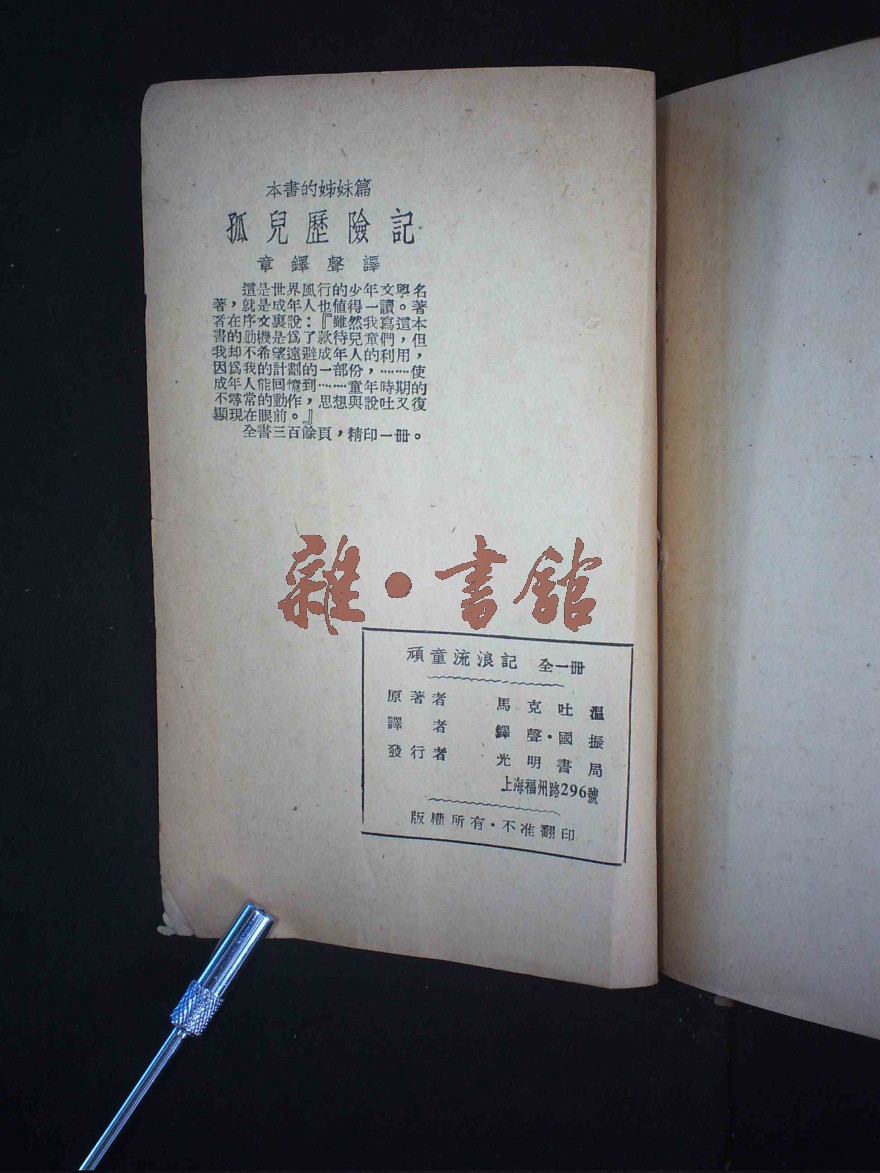 本書的姊妹篇
孤兒歷險記
章鐸聲譯
這是世界風行的少年文學名
著，就是成年人也値得一讀。著
者在序文裏說：『雖然我寫這本
書的動機是爲了款待兒童們，但
我却不希望遠避成年人的利用，
因爲我的計劃的一部份，………使
成年人能回憶到………童年時期的
不尋常的動作，思想與說吐又復
顯現在眼前。』
全書三百餘頁，精印一冊。
雜·書館
頑童流浪記 全一冊
原著者 馬克吐溫
譯者 鐸聲·國振
發行者 光明書局
上海福州路296號
版權所有·不准翻印